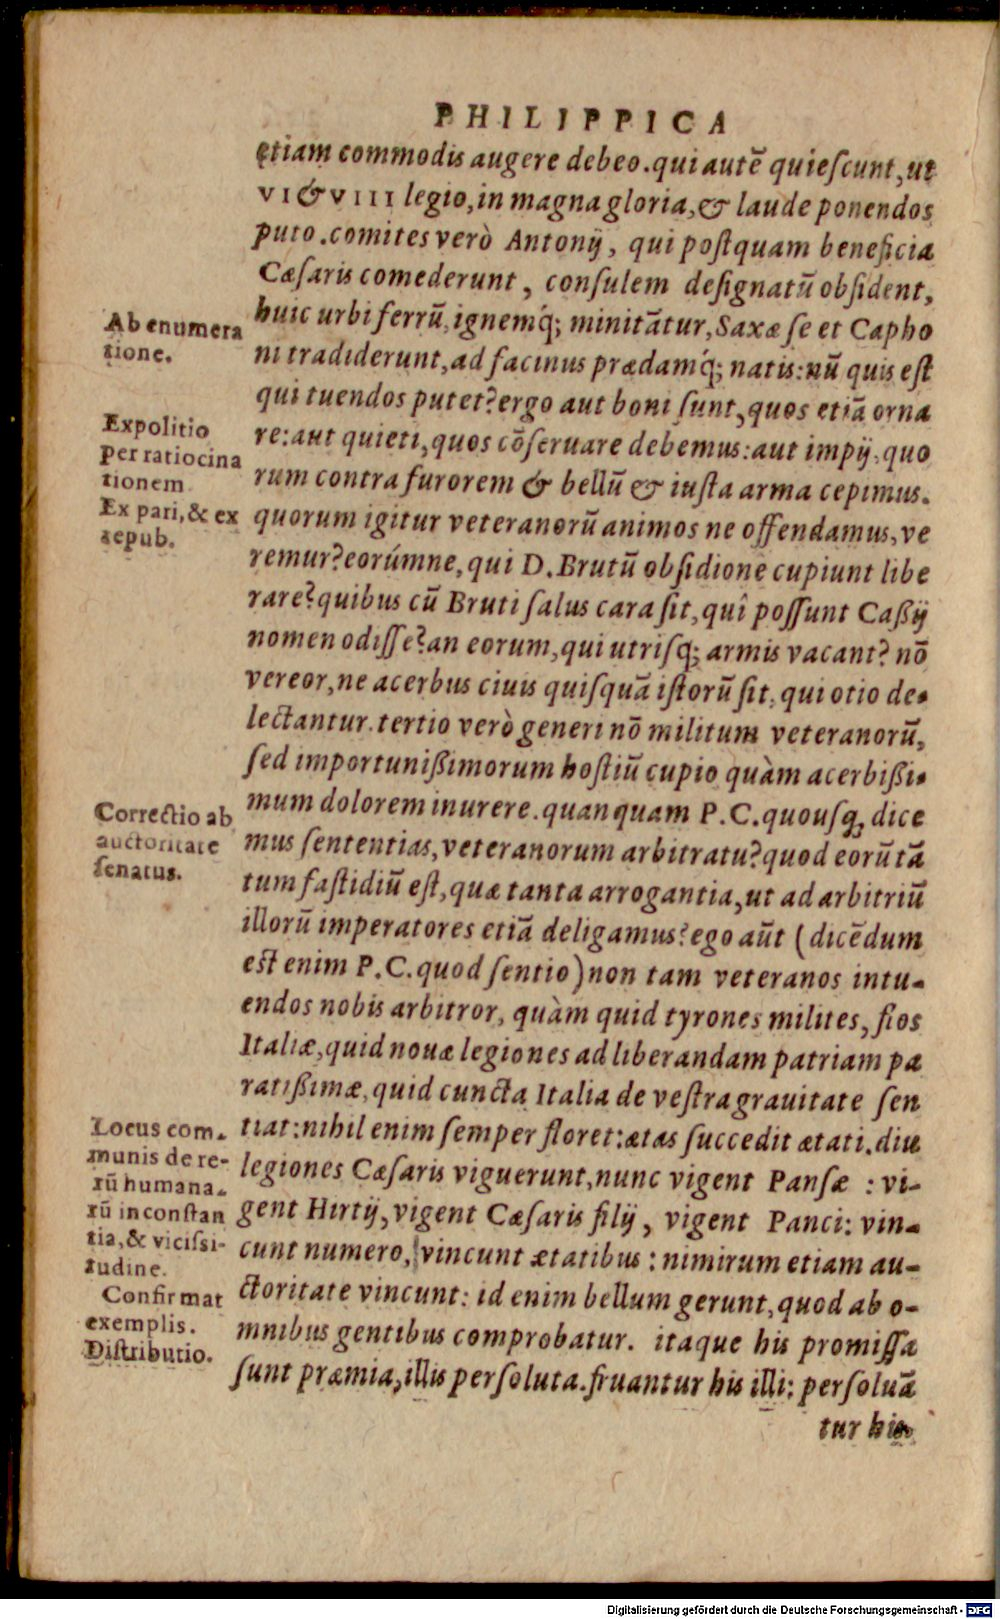 PHILIPPICA
etiam commodis augere debeo. qui autē quieſcunt, ut
VI & VIII legio, in magna gloria, & laude ponendos
puto. comites verò Antonij, qui poſtquam beneficia
Cæſaris comederunt, conſulem deſignatū obſident,
huic urbi ferrū, ignemq́; minitātur, Saxæ ſe et Capho
ni tradiderunt, ad facinus prædamq́; natis: nū quis eſt
qui tuendos putet? ergo aut boni ſunt, quos etiā orna
re: aut quieti, quos cōſeruare debemus: aut impij, quo
rum contra furorem & bellū & iuſta arma cepimus.
quorum igitur veteranorū animos ne offendamus, ve
remur? eorúmne, qui D. Brutū obſidione cupiunt libe
rare? quibus cū Bruti ſalus cara ſit, quî poſſunt Caßij
nomen odiſſe? an eorum, qui utriſq; armis vacant? nō
vereor, ne acerbus ciuis quiſquā iſtorū ſit, qui otio de-
lectantur. tertio verò generi nō militum veteranorū,
ſed importunißimorum hoſtiū cupio quàm acerbißi-
mum dolorem inurere. quanquam P. C. quouſq; dice
mus ſententias, veteranorum arbitratu? quod eorū tā
tum faſtidiū eſt, quæ tanta arrogantia, ut ad arbitriū
illorū imperatores etiā deligamus? ego aūt (dicēdum
eſt enim P. C. quod ſentio) non tam veteranos intu-
endos nobis arbitror, quàm quid tyrones milites, flos
Italiæ, quid nouæ legiones ad liberandam patriam pa
ratißimæ, quid cuncta Italia de veſtra grauitate ſen
tiat: nihil enim ſemper floret: ætas ſuccedit ætati. diu
legiones Cæſaris viguerunt, nunc vigent Panſæ : vi-
gent Hirtij, vigent Cæſaris filij, vigent Panci: vin-
cunt numero, vincunt ætatibus : nimirum etiam au-
ctoritate vincunt: id enim bellum gerunt, quod ab o-
mnibus gentibus comprobatur. itaque his promiſſa
ſunt præmia, illis perſoluta. fruantur his illi: perſoluā
tur his
Ab enumera
tione.
Expolitio
per ratiocina
tionem
Ex pari, & ex
repub.
Correctio ab
auctoritate
ſenatus.
Locus com-
munis de re-
rū humana-
rū inconſtan
tia, & viciſsi-
tudine.
Confirmat
exemplis.
Diſtributio.
Digitalisierung gefördert durch die Deutsche Forschungsgemeinschaft - DFG